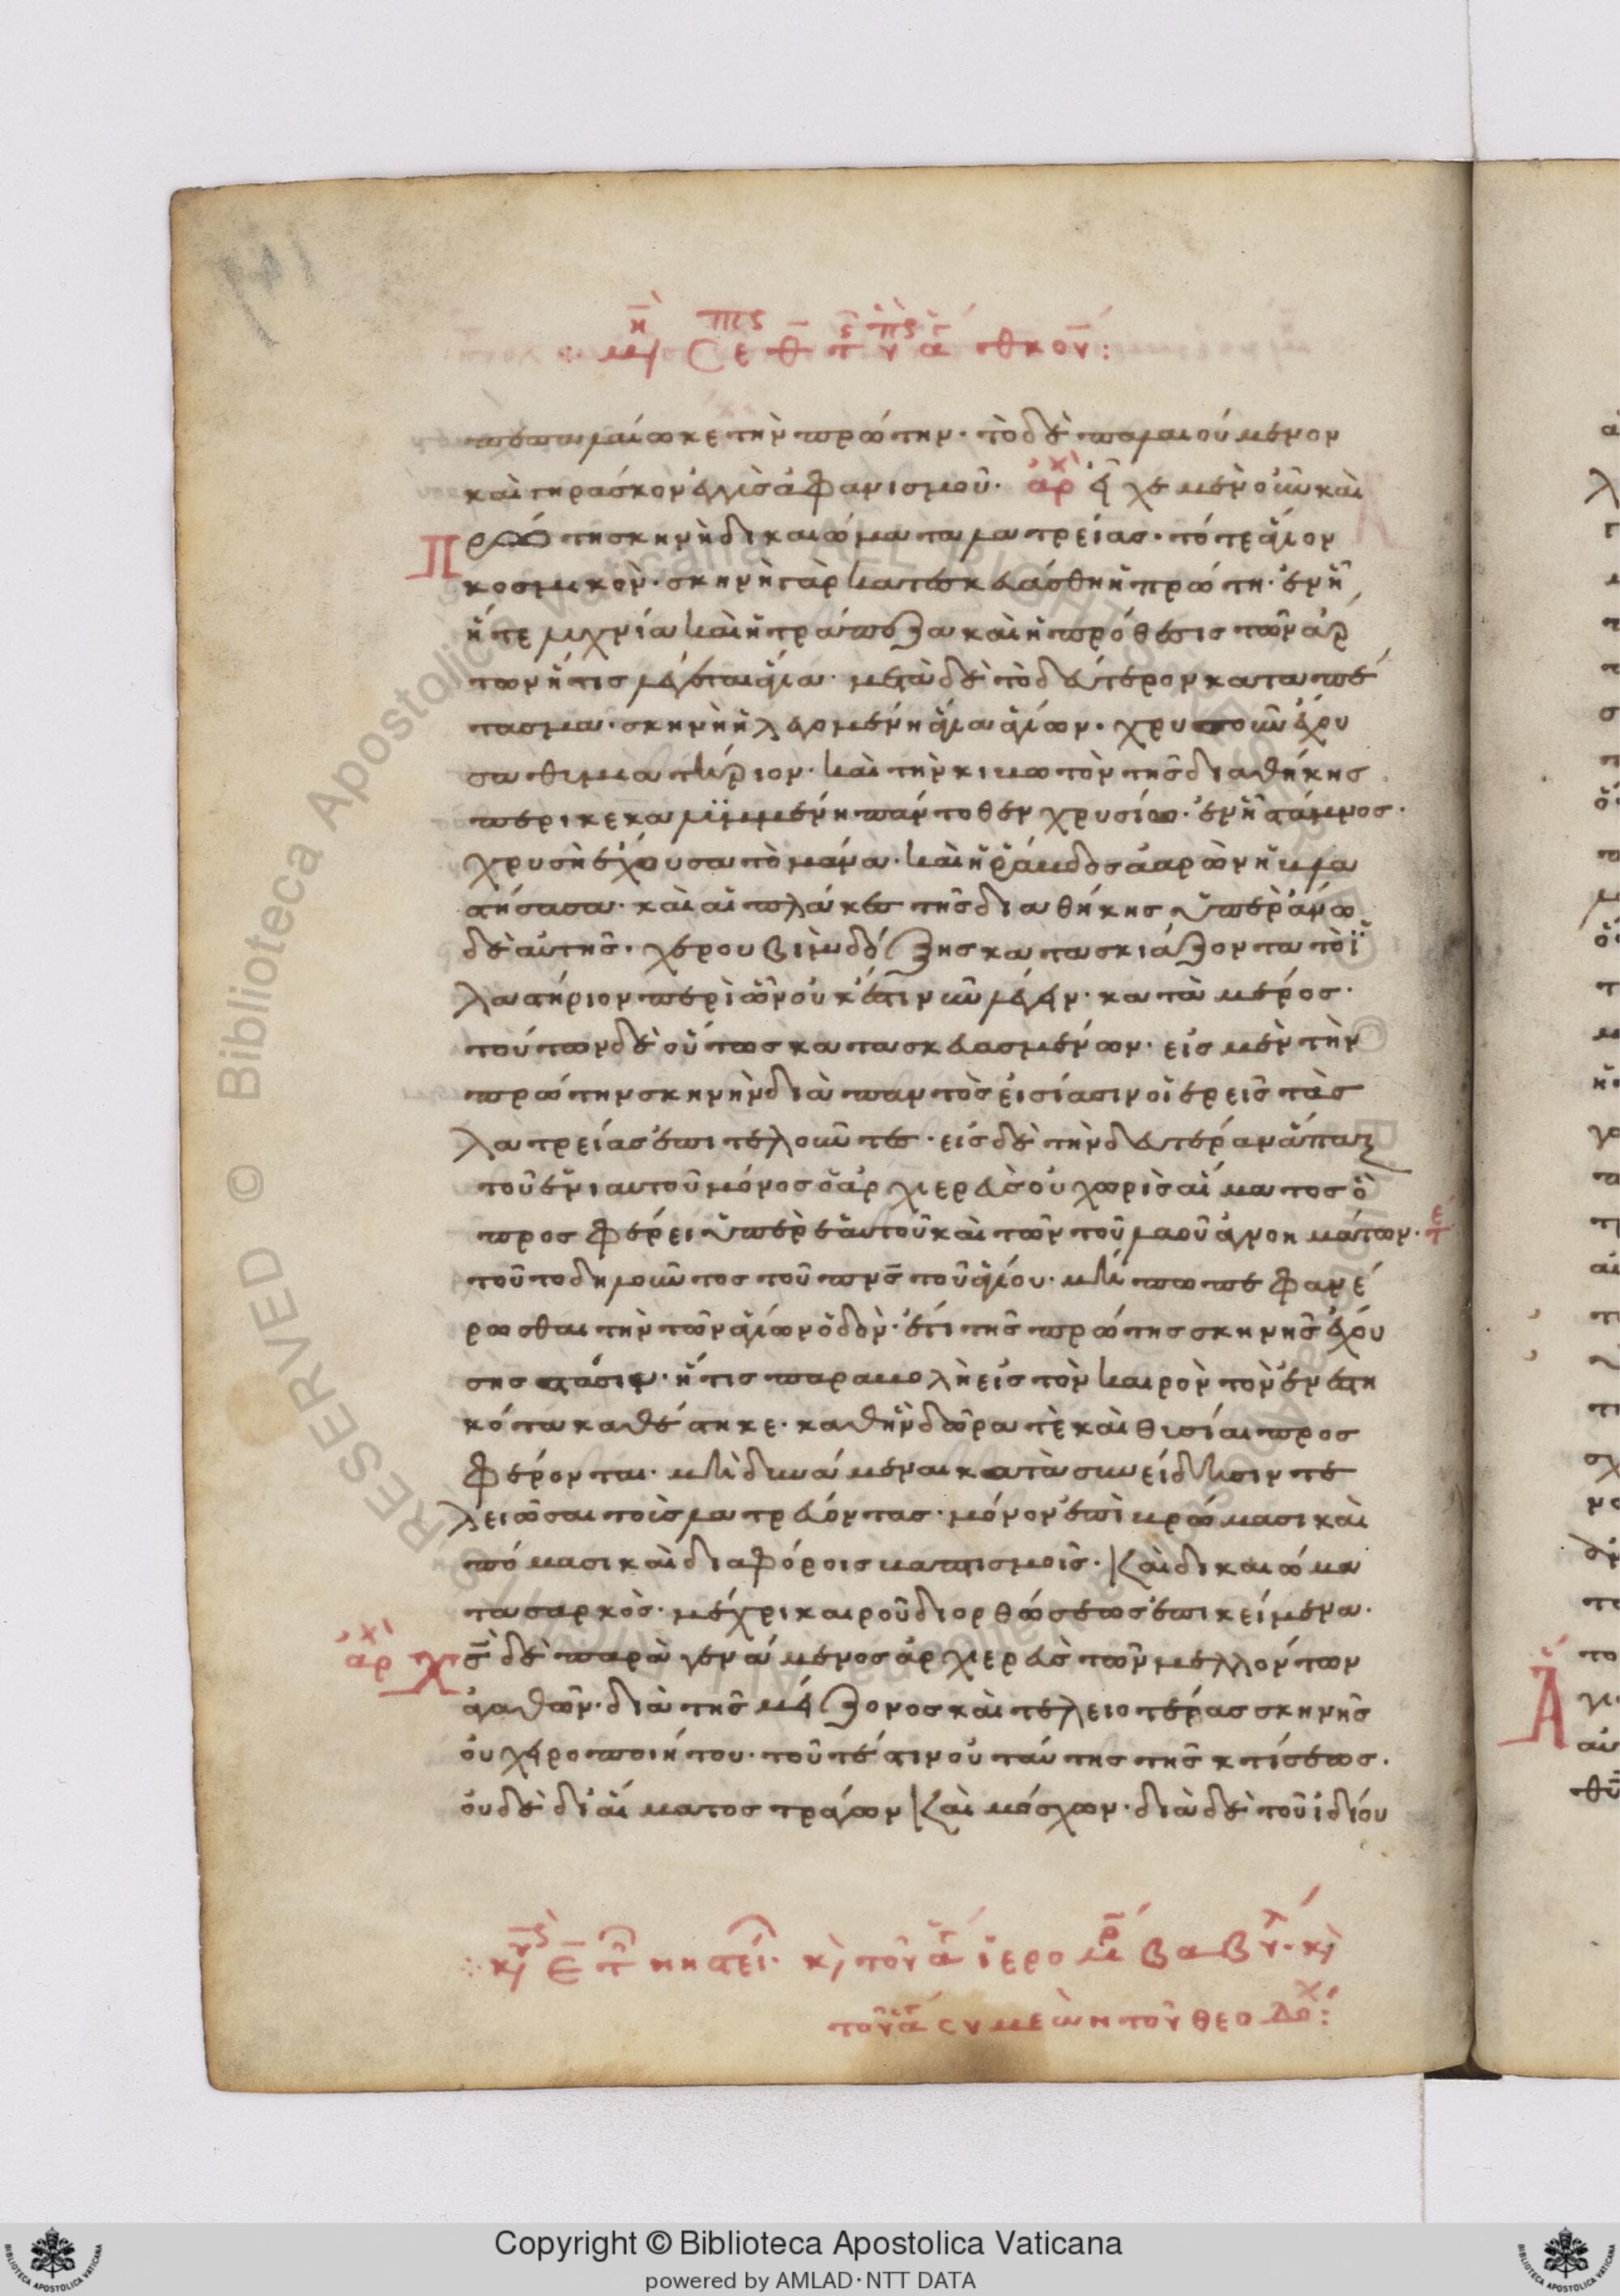 πεπαλαίωκε τὴν πρώτην· τὸ δὲ παλαιούμενον
καὶ γηράσκον ἐγγὺς ἀφανισμοῦ· ἀρχ εἶχε μὲν οὖν καὶ
Πρώτη σκηνὴ δικαιώματα λατρείας· τό τε ἅγιον
κοσμικὸν· σκηνὴ γὰρ κατεσκευάσθη ἡ πρώτη· ἐν ᾗ
ἥ τε λυχνία καὶ ἡ τράπεζα καὶ ἡ πρόθεσις τῶν ἄρ
των ἥτις λέγεται ἅγια· μετὰ δὲ τὸ δεύτερον καταπέ
τασμα· σκηνὴ ἡ λεγομένη ἅγια ἁγίων· χρυσοῦν ἔχου
σα θυμιατήριον· καὶ τὴν κιβωτὸν τῆς διαθήκης
περικεκαλϋμμένην πάντοθεν χρυσίω· ἐν ᾗ στάμνος·
χρυσὴ ἔχουσα τὸ μάννα· καὶ ἡ ῥάβδος ἀαρὼν ἡ βλα
στήσασα· καὶ αἱ πλάκες τῆς διαθήκης ὑπεράνω
δὲ αὐτῆς· χερουβὶμ δόξης κατασκιάζοντα τὸ ἱ
λαστήριον περὶ ὧν οὐκ ἔστιν νῦν λέγειν· κατὰ μέρος·
τούτων δὲ οὕτως κατασκευασμένων· εἰς μὲν τὴν
πρώτην σκηνὴν διὰ παντὸς εἰσίασιν οἱ ἱερεῖς τὰς
λατρείας ἐπιτελοῦντες· εἰς δὲ τὴν δευτέραν ἅπαξ
τοῦ ἐνιαυτοῦ μόνος ὁ ἀρχιερεὺς οὐ χωρὶς αἵματος ὃ
προσφέρει ὑπὲρ ἑαυτοῦ καὶ τῶν τοῦ λαοῦ ἀγνοημάτων· τε
τοῦτο δηλοῦντος τοῦ πνς τοῦ ἁγίου· μήπω πεφανε
ρῶσθαι τὴν τῶν ἁγίων ὁδὸν· ἔτι τῆς πρώτης σκηνῆς ἐχού
σης στάσιν· ἥτις παραβολὴ εἰς τὸν καιρὸν τὸν ἐνεστη
κότα καθέστηκε· καθ' ἣν δῶρα τὲ καὶ θυσίαι προσ
φέρονται· μὴ δυνάμεναι κατὰ συνείδησιν τε
λειῶσαι τοὺς λατρεύοντας· μόνον ἐπὶ βρώμασι καὶ
πόμασι καὶ διαφόροις βαπτισμοῖς· καὶ δικαιώμα
τα σαρκὸς· μέχρι καιροῦ διορθώσεως ἐπικείμενα·
ἀρχ Χς δὲ παραγενάμενος ἀρχιερεὺς τῶν μελλόντων
ἀγαθῶν· διὰ τῆς μείζονος καὶ τελειοτέρας σκηνῆς
οὐ χειροποιήτου· τοῦτέστιν οὐ ταύτης τῆς κτίσεως·
οὐδὲ δι' αἵματος τράγων καὶ μόσχων· διὰ δὲ τοῦ ἰδίου